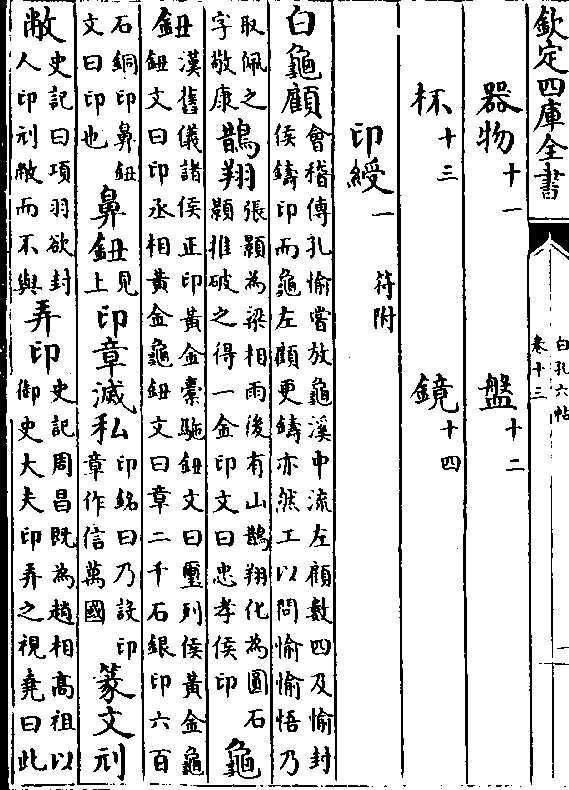 欽定四庫全書
白孔六帖
卷十三
一
器物十一　盤十二
杯十三　鏡十四
印綬一　符附
白龜顧會稽傳孔愉嘗放龜溪中流左顧數四及愉封侯鑄印而龜左顧更鑄亦然工以問愉愉悟乃
取佩之字敬康鵲翔張顥為梁相雨後有山鵲翔化為圓石顥推破之得一金印文曰忠孝侯印龜
鈕漢舊儀諸侯王印黃金橐駞鈕文曰璽列侯黃金龜鈕文曰印丞相黃金龜鈕文曰章二千石銀印六百
石銅印鼻鈕文曰印也鼻鈕見上印章滅私印銘曰乃設印章作信萬國篆文刓
敝史記曰項羽欲封人印刓敝而不與弄印史記周昌既為趙相高祖以御史大夫印弄之視堯曰此